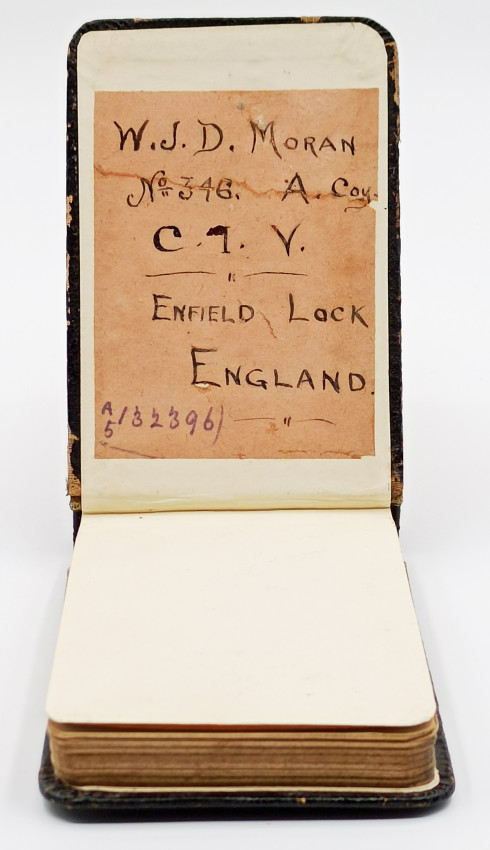 W.J.D. MORAN
No 346. A. Coy.
C.I.V.
ENFIELD LOCK
ENGLAND.
A/5/132396)